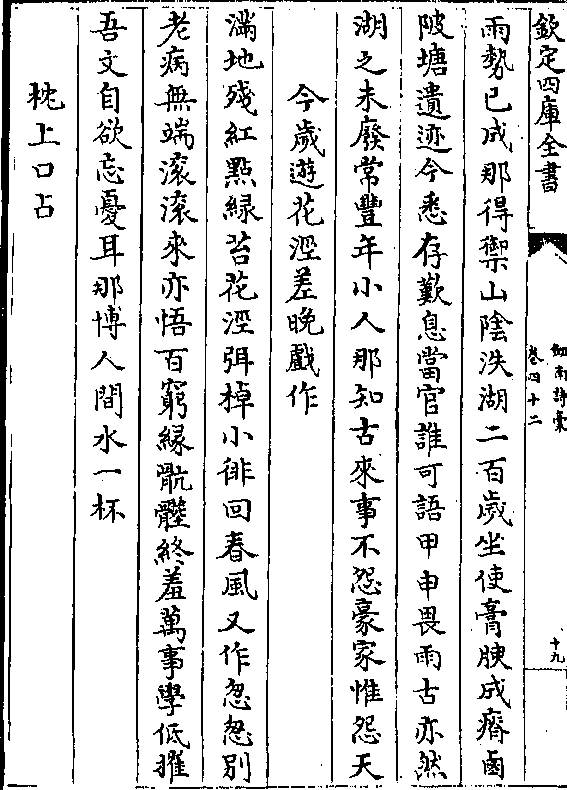 欽定四庫全書
劍南詩稾
卷四十二
十九
雨勢已成那得禦山陰泆湖二百歲坐使膏腴成瘠鹵
陂塘遺迹今悉存歎息當官誰可語甲申畏雨古亦然
湖之未廢常豐年小人那知古來事不怨豪家惟怨天
今歲遊花涇差晚戲作
滿地殘紅點緑苔花涇弭棹小徘回春風又作怱怱別
老病無端滚滚來亦悟百窮緣骯髒終羞萬事學低摧
吾文自欲忘憂耳那博人間水一杯
枕上口占